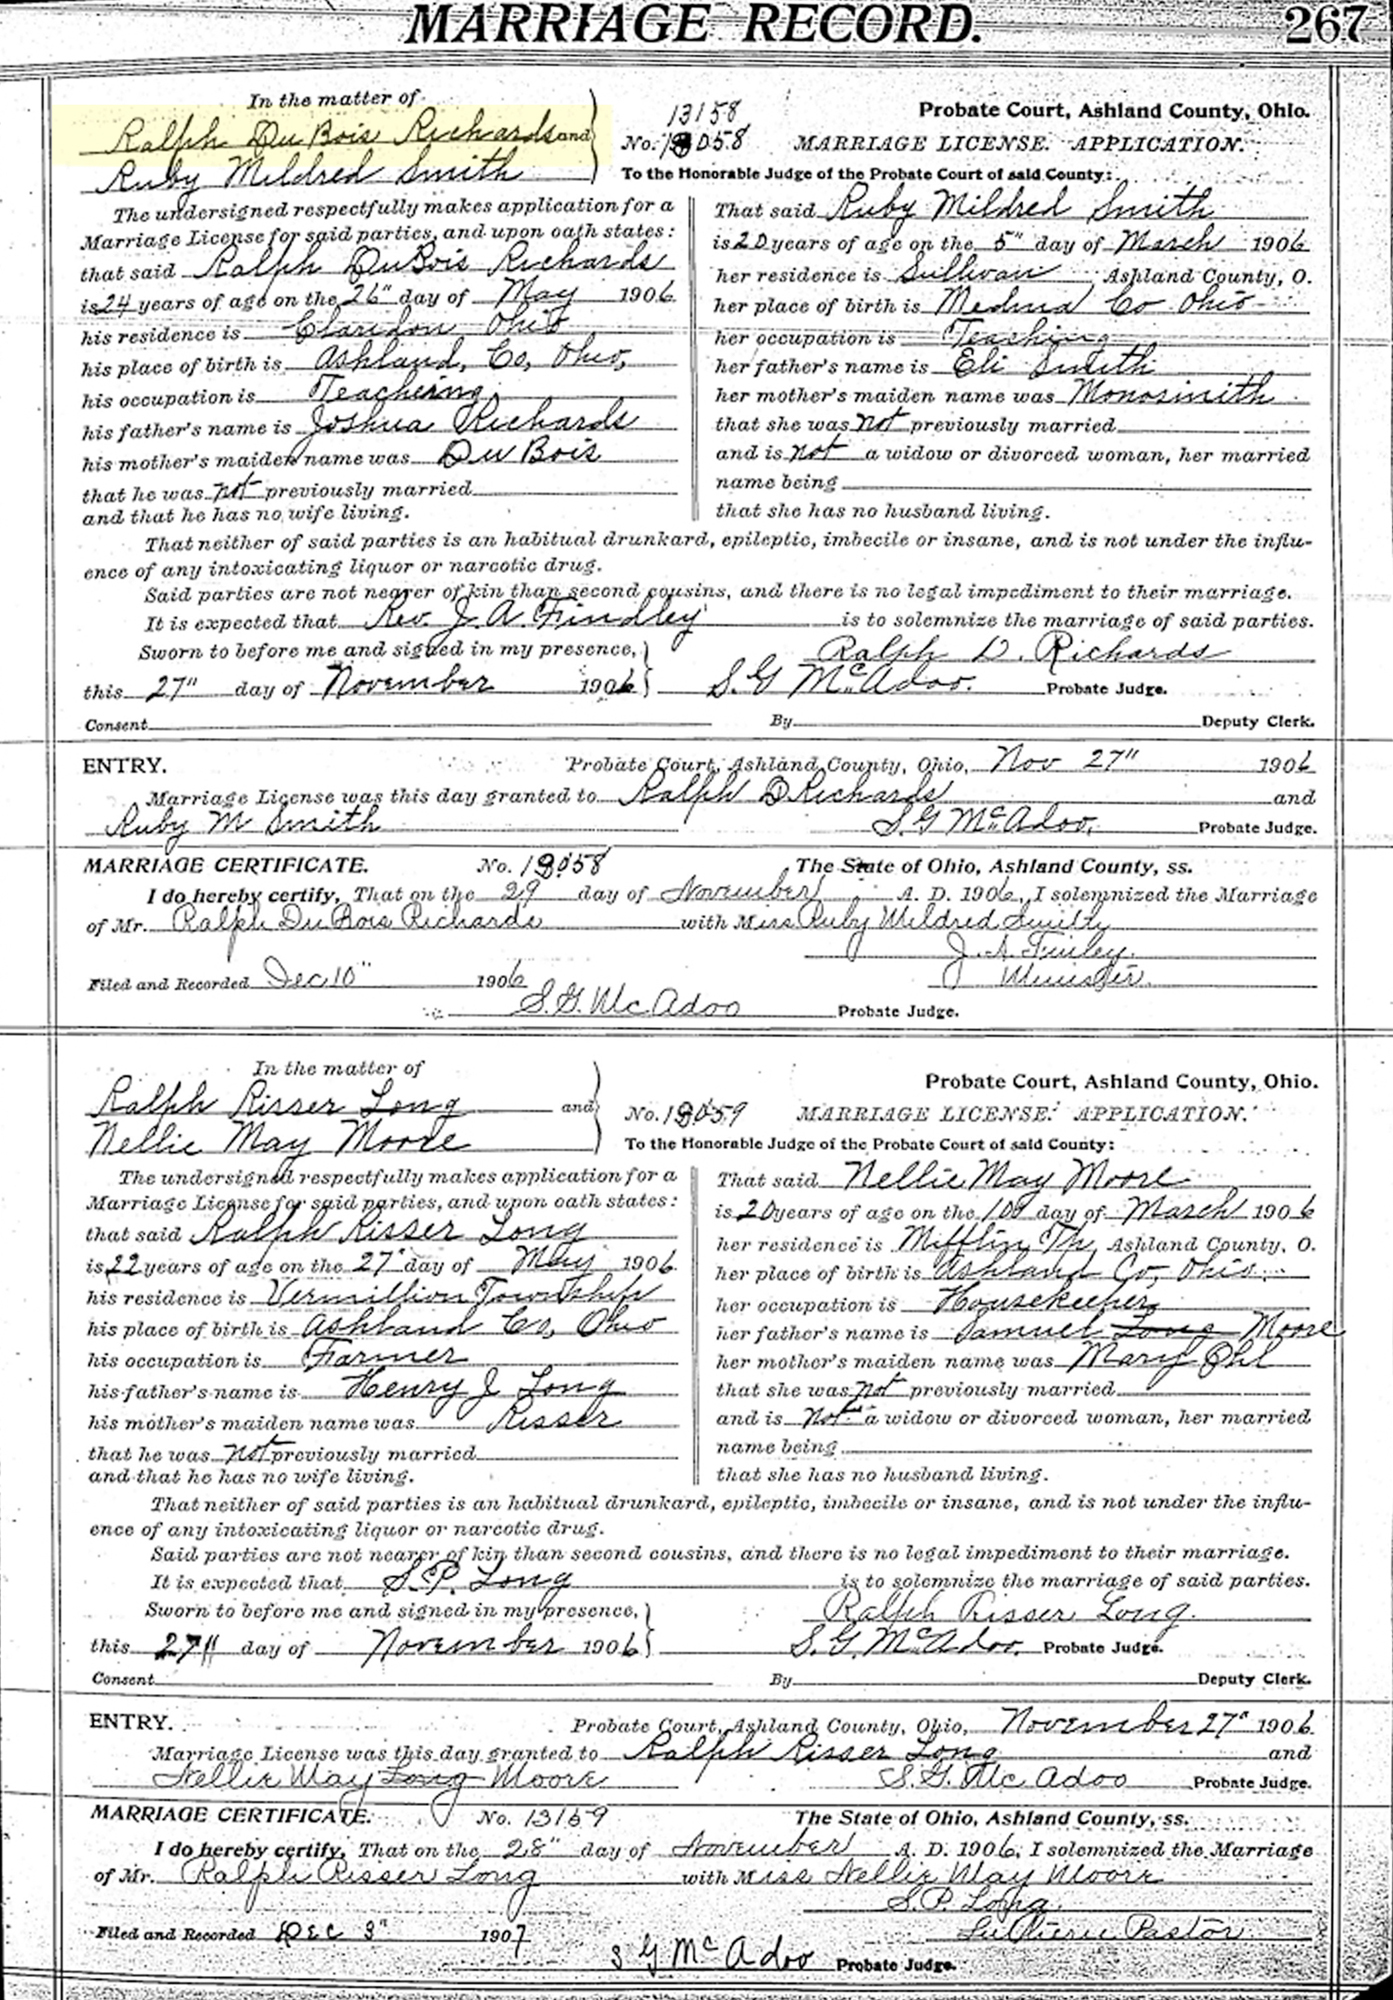 MARRIAGE RECORD. 267
In the matter of
Ralph DuBois Richards and
Ruby Mildred Smith
13158
Probate Court, Ashland County, Ohio.
No. 13058 MARRIAGE LICENSE. APPLICATION.
To the Honorable Judge of the Probate Court of said County:
The undersigned respectfully makes application for a
Marriage License for said parties, and upon oath states:
that said Ralph DuBois Richards
is 24 years of age on the 26" day of May 1906
his residence is Claridon Ohio
his place of birth is Ashland, Co, Ohio,
his occupation is Teaching
his father's name is Joshua Richards
his mother's maiden name was DuBois
that he was not previously married
and that he has no wife living.
That said Ruby Mildred Smith
is 20 years of age on the 5" day of March 1906
her residence is Sullivan Ashland County, O.
her place of birth is Medina Co Ohio
her occupation is Teaching
her father's name is Eli Smith
her mother's maiden name was Monosmith
that she was not previously married
and is not a widow or divorced woman, her married
name being
that she has no husband living.
That neither of said parties is an habitual drunkard, epileptic, imbecile or insane, and is not under the influ-
ence of any intoxicating liquor or narcotic drug.
Said parties are not nearer of kin than second cousins, and there is no legal impediment to their marriage.
It is expected that Rev J. A. Findley is to solemnize the marriage of said parties.
Sworn to before me and signed in my presence, Ralph D. Richards
this 27" day of November 1906 S. G McAdoo. Probate Judge.
Consent By Deputy Clerk.
ENTRY. Probate Court, Ashland County, Ohio, Nov 27" 1906
Marriage License was this day granted to Ralph D Richards and
Ruby M Smith S G McAdoo. Probate Judge.
MARRIAGE CERTIFICATE. No. 13058 The State of Ohio, Ashland County, ss.
I do hereby certify, That on the 29 day of November A. D. 1906, I solemnized the Marriage
of Mr. Ralph DuBois Richards with Miss Ruby Mildred Smith
J. A. Finley.
Filed and Recorded Dec 10" 1906 Minister.
S. G. McAdoo Probate Judge.
In the matter of
Ralph Risser Long and
Nellie May Moore
Probate Court, Ashland County, Ohio.
No. 13059 MARRIAGE LICENSE. APPLICATION.
To the Honorable Judge of the Probate Court of said County:
The undersigned respectfully makes application for a
Marriage License for said parties, and upon oath states:
that said Ralph Risser Long
is 22 years of age on the 27" day of May 1906
his residence is Vermillion Township
his place of birth is Ashland Co, Ohio
his occupation is Farmer
his father's name is Henry J Long
his mother's maiden name was Risser
that he was not previously married
and that he has no wife living.
That said Nellie May Moore
is 20 years of age on the day of March 1906
her residence is Mifflin Tp, Ashland County, O.
her place of birth is Ashland Co, Ohio
her occupation is Housekeeper
her father's name is Samuel Long Moore
her mother's maiden name was Mary Ohl
that she was not previously married
and is not a widow or divorced woman, her married
name being
that she has no husband living.
That neither of said parties is an habitual drunkard, epileptic, imbecile or insane, and is not under the influ-
ence of any intoxicating liquor or narcotic drug.
Said parties are not nearer of kin than second cousins, and there is no legal impediment to their marriage.
It is expected that S. P. Long is to solemnize the marriage of said parties.
Sworn to before me and signed in my presence, Ralph Risser Long.
this 27" day of November 1906 S. G. McAdoo. Probate Judge.
Consent By Deputy Clerk.
ENTRY. Probate Court, Ashland County, Ohio, November 27" 1906
Marriage License was this day granted to Ralph Risser Long and
Nellie May Long Moore S. G. McAdoo Probate Judge.
MARRIAGE CERTIFICATE. No. 13159 The State of Ohio, Ashland County, ss.
I do hereby certify, That on the 28" day of November A. D. 1906, I solemnized the Marriage
of Mr. Ralph Risser Long with Miss Nellie May Moore
S. P. Long
Filed and Recorded Dec 3" 1907 Pastor
S G McAdoo Probate Judge.